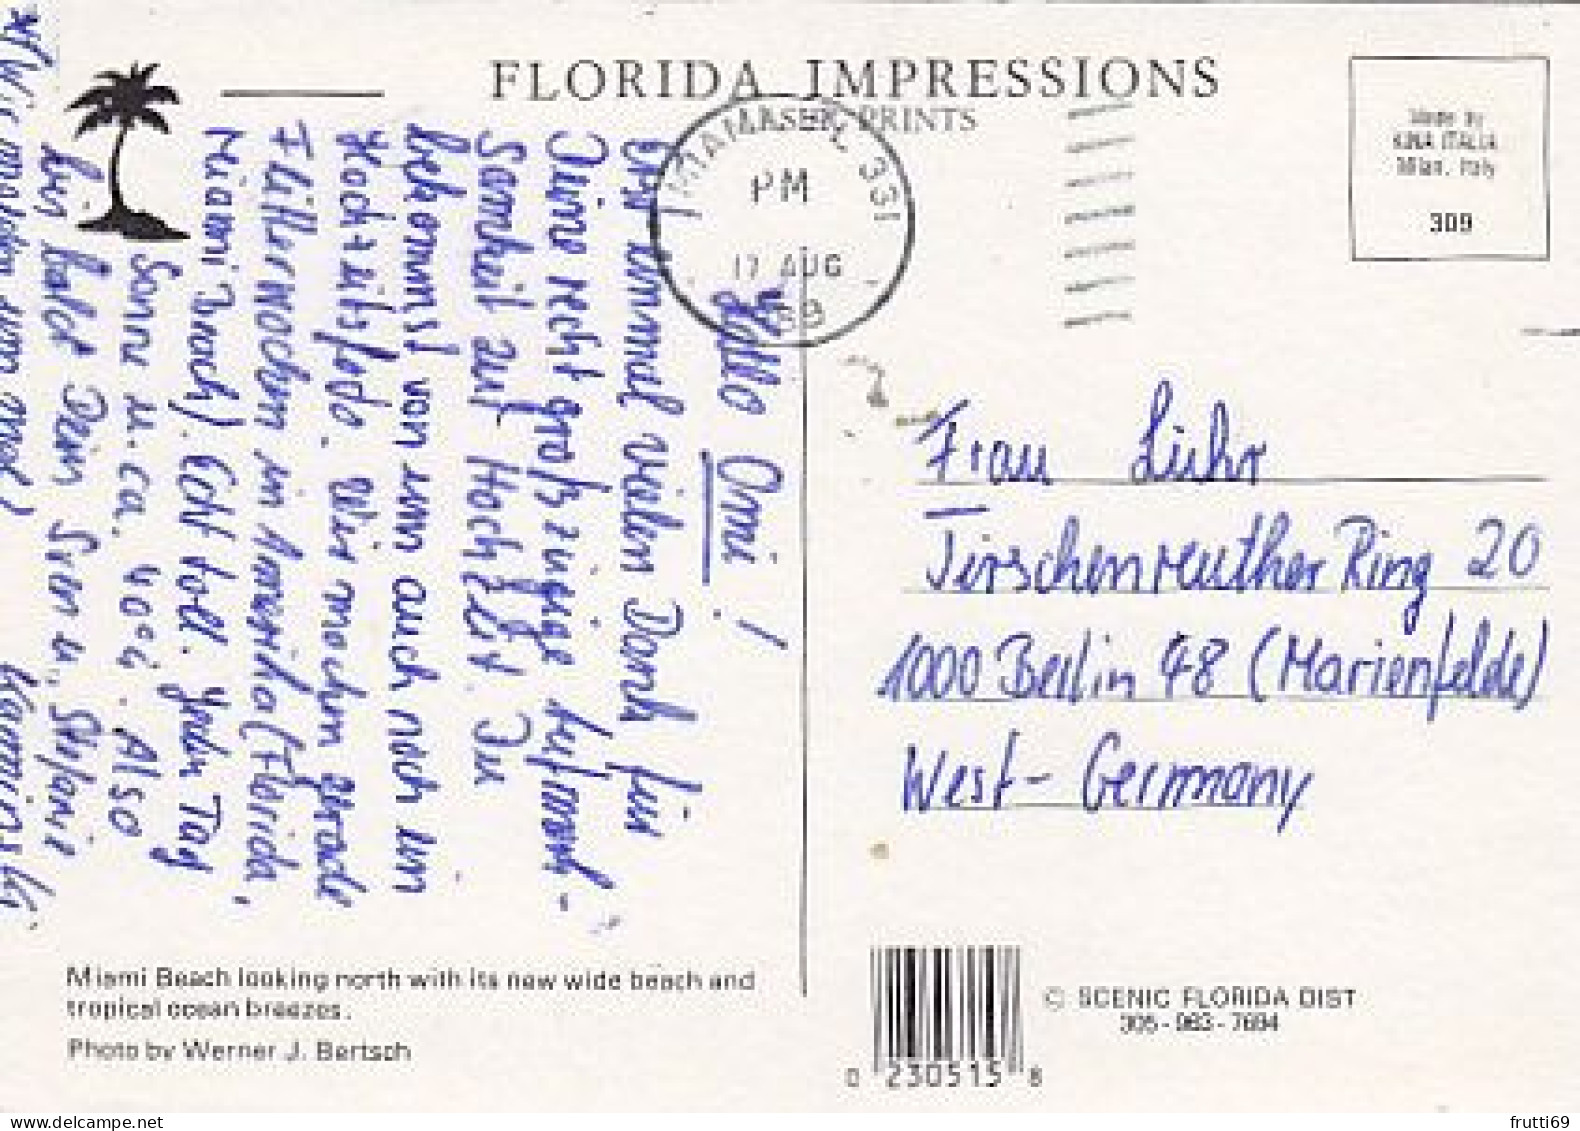 FLORIDA IMPRESSIONS
LASER PRINTS
MIAMI, FL 331
PM
17 AUG
89
Made by
KINA ITALIA
Milan, Italy
309
Hallo Omi!
Erst einmal vielen Dank für
Deine recht großzügige Aufmerk-
samkeit zur Hochzeit. Du
bekommst von uns auch noch ein
Hochzeitsfoto. Wir machen gerade
Flitterwochen in Amerika (Florida,
Miami Beach). Echt toll. Jeden Tag
Sonne u. ca. 40°C. Also
bis bald Dein Sven u. Stefanie
Kaminski
*(Wir melden uns mal)
Frau Lühr
Tirschenreuther Ring 20
1000 Berlin 48 (Marienfelde)
West-Germany
Miami Beach looking north with its new wide beach and
tropical ocean breezes.
Photo by Werner J. Bertsch
© SCENIC FLORIDA DIST
305-963-7694
0 230515 8
frutti69